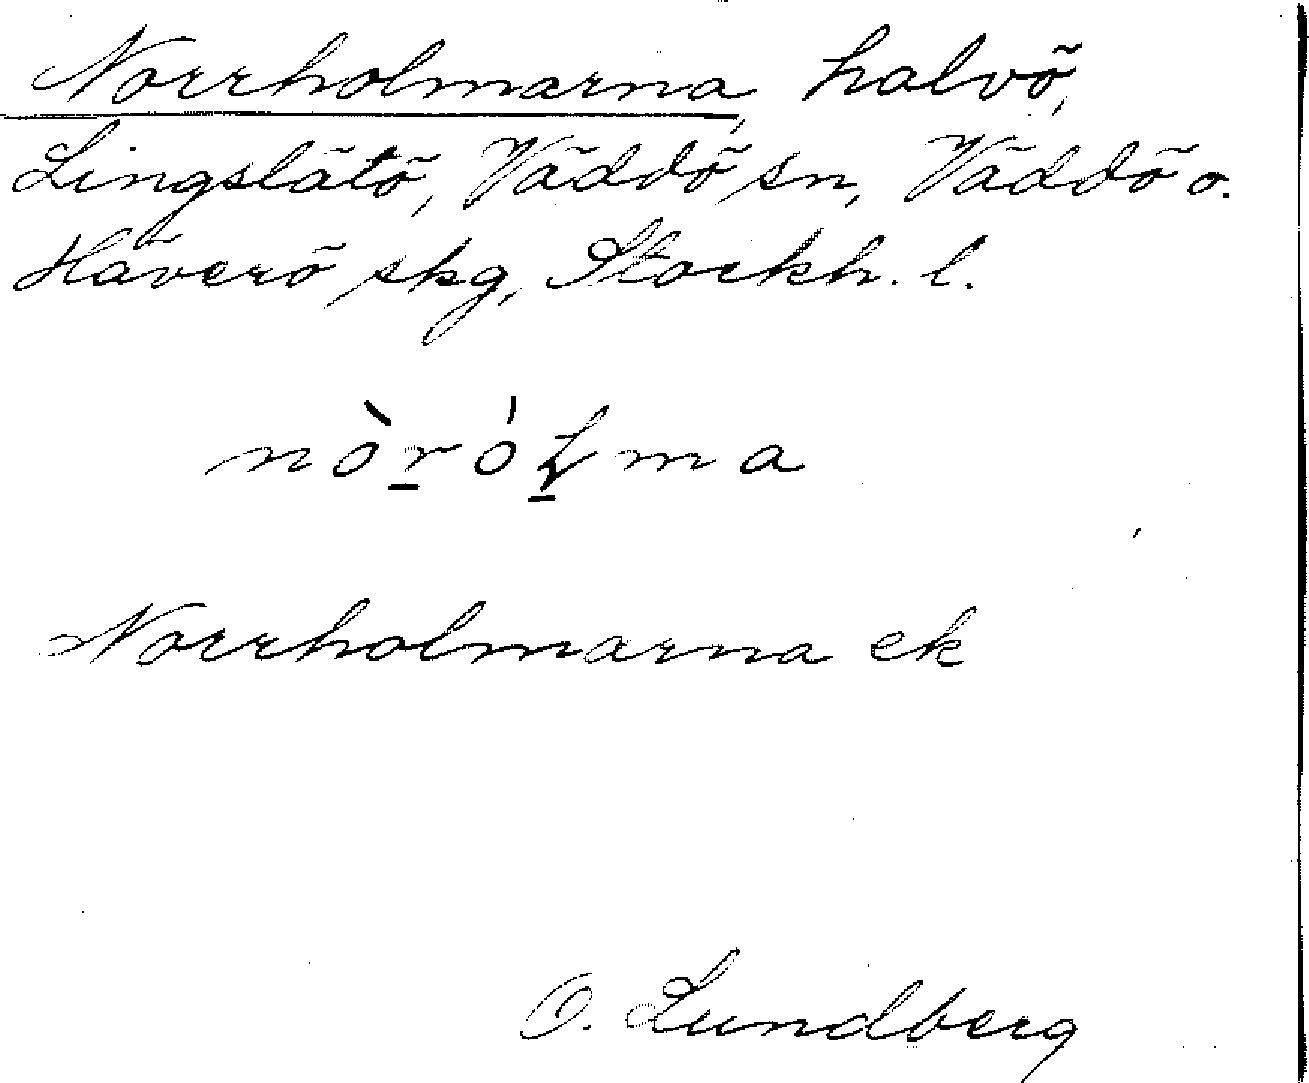 Norrholmarna, halvö,
Lingslätö, Väddö sn, Väddö o.
Häverö skg, Stockh. l.
nòróḻma
Norrholmarna ek
O. Lundberg